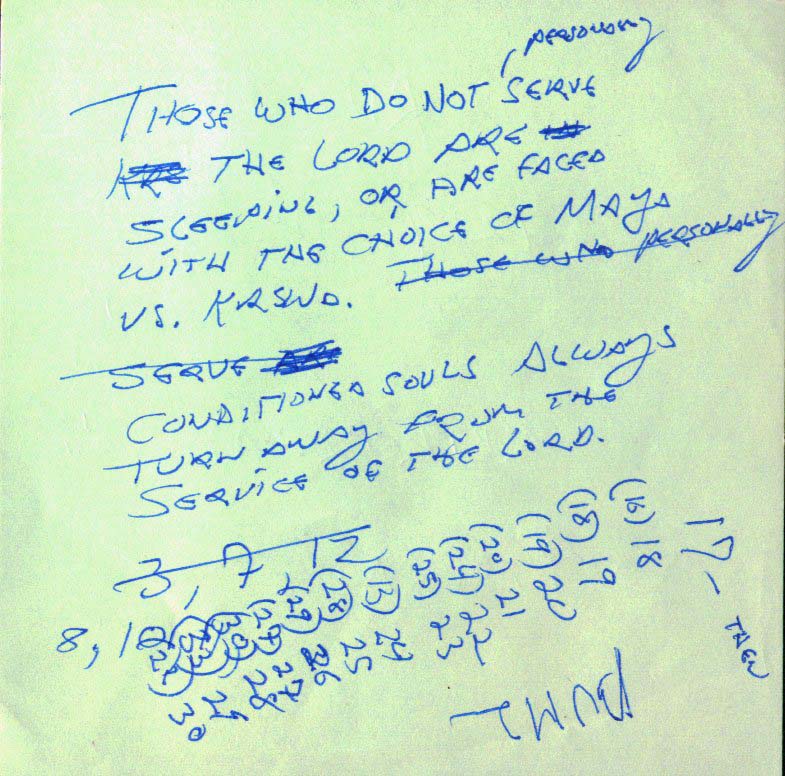 PERSONALLY
THOSE WHO DO NOT, SERVE
THE LORD ARE
SLEEPING, OR ARE FACED
WITH THE CHOICE OF MAYA
VS. KRSNA. THOSE WHO PERSONALLY
SERVE
CONDITIONED SOULS ALWAYS
TURN AWAY FROM THE
SERVICE OF THE LORD.
3, 7, 12
8, 10
17 - THEN
(16) 18
(18) 19
(19) 20
(20) 21
(24) 22
(25) 23
(13) 24
(28) 25
(29) 26
27
28
29
30